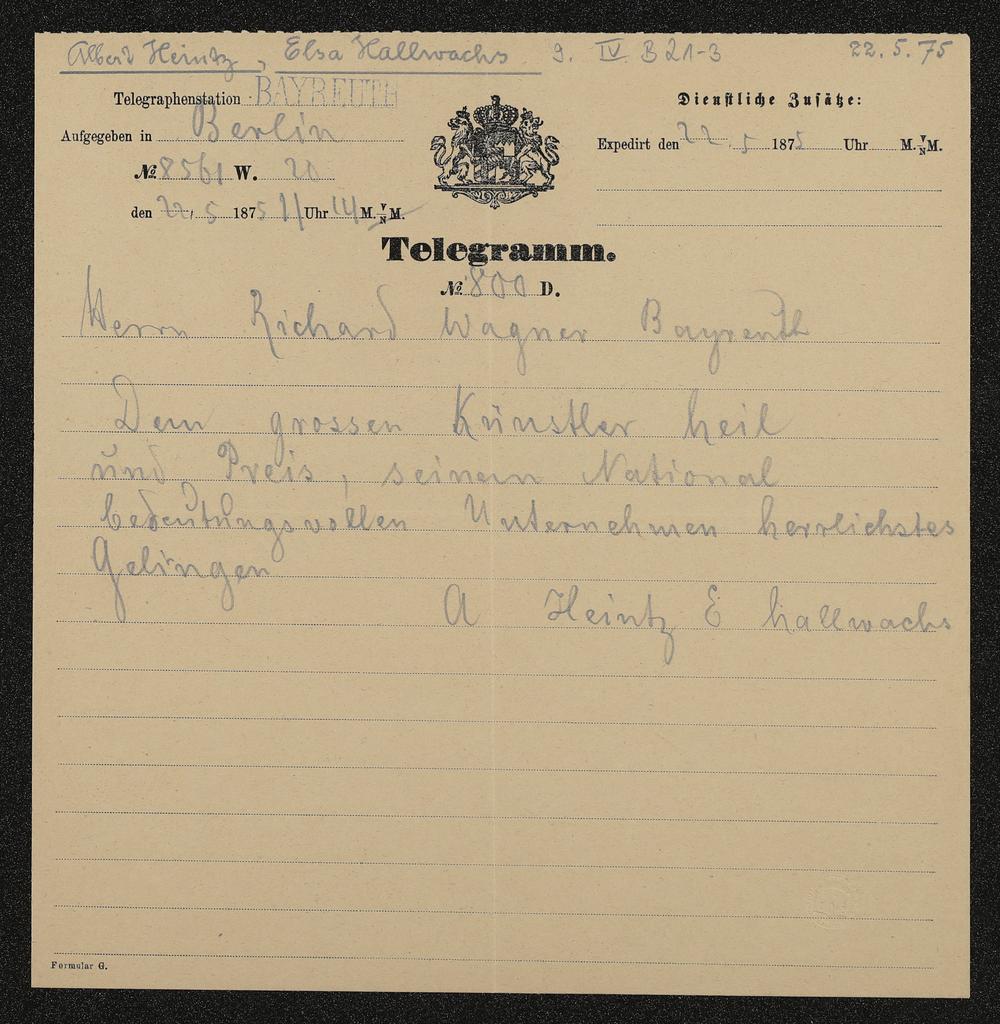 Albert Heintz, Elsa Hallwachs 9. IV B 21-3 22.5.75
Telegraphenstation BAYREUTH
Dienstliche Zusätze:
Aufgegeben in Berlin
Expedirt den 22. 5 1875 Uhr M. V/N M.
№ 8561 W. 20
den 22. 5 1875 11 Uhr 14 M. V/N M.
Telegramm.
№ 800 D.
Herrn Richard Wagner Bayreuth
Dem grossen Künstler heil
und Preis, seinem National
bedeutungsvollen Unternehmen herrlichstes
Gelingen
A Heintz E hallwachs
Formular G.